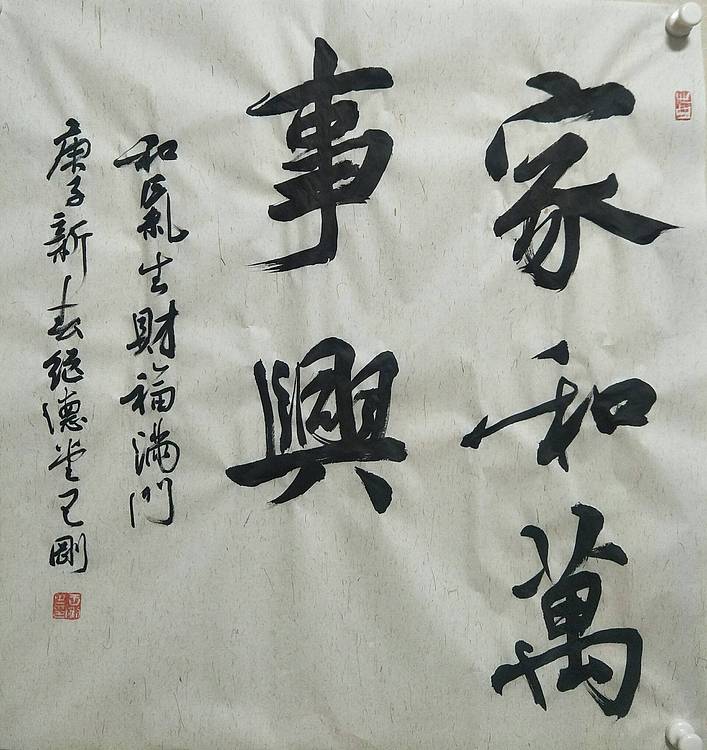 家和萬
事興
和氣生財福滿門
庚子新春繼德堂己剛